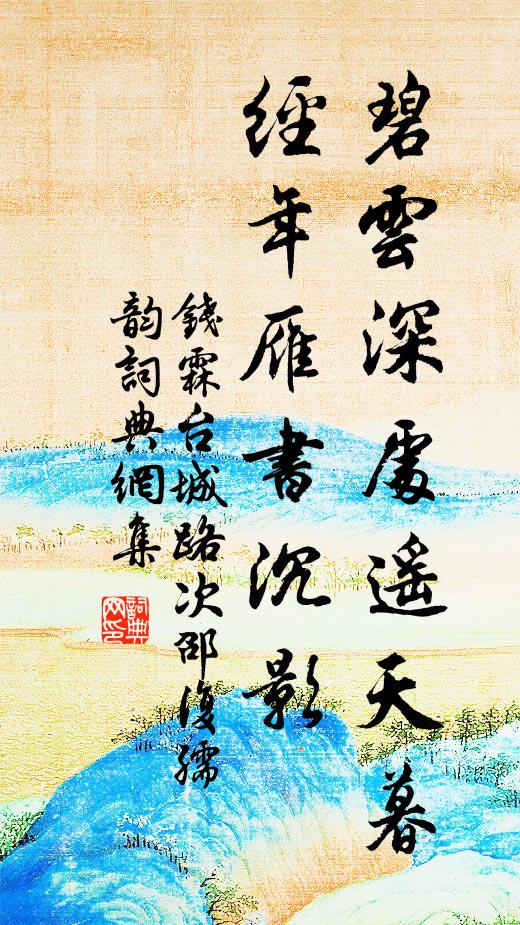 碧雲深處遥天暮
經年雁書沉影
錢霖台城路次邵復孺
韵詞典網集
詞典网印